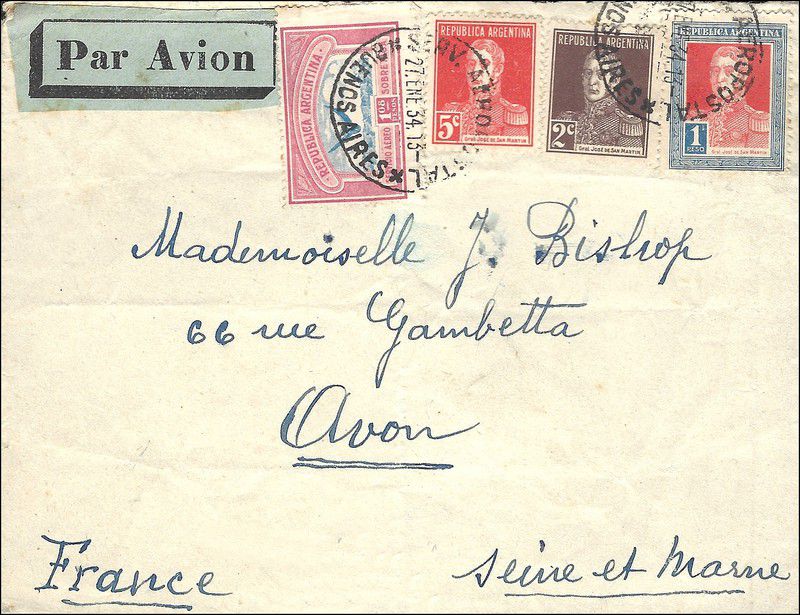 Par Avion
REPUBLICA ARGENTINA
SOBRE
AEREO
1 08
PESOS
REPUBLICA ARGENTINA
5c
Gral. José de San Martin
REPUBLICA ARGENTINA
2c
Gral. José de San Martin
REPUBLICA ARGENTINA
1
PESO
Gral. José de San Martin
27.ENE.34.13-
*BUENOS AIRES*
AEROPOSTAL
AIRES*
Mademoiselle J. Bishop
66 rue Gambetta
Avon
France
Seine et Marne